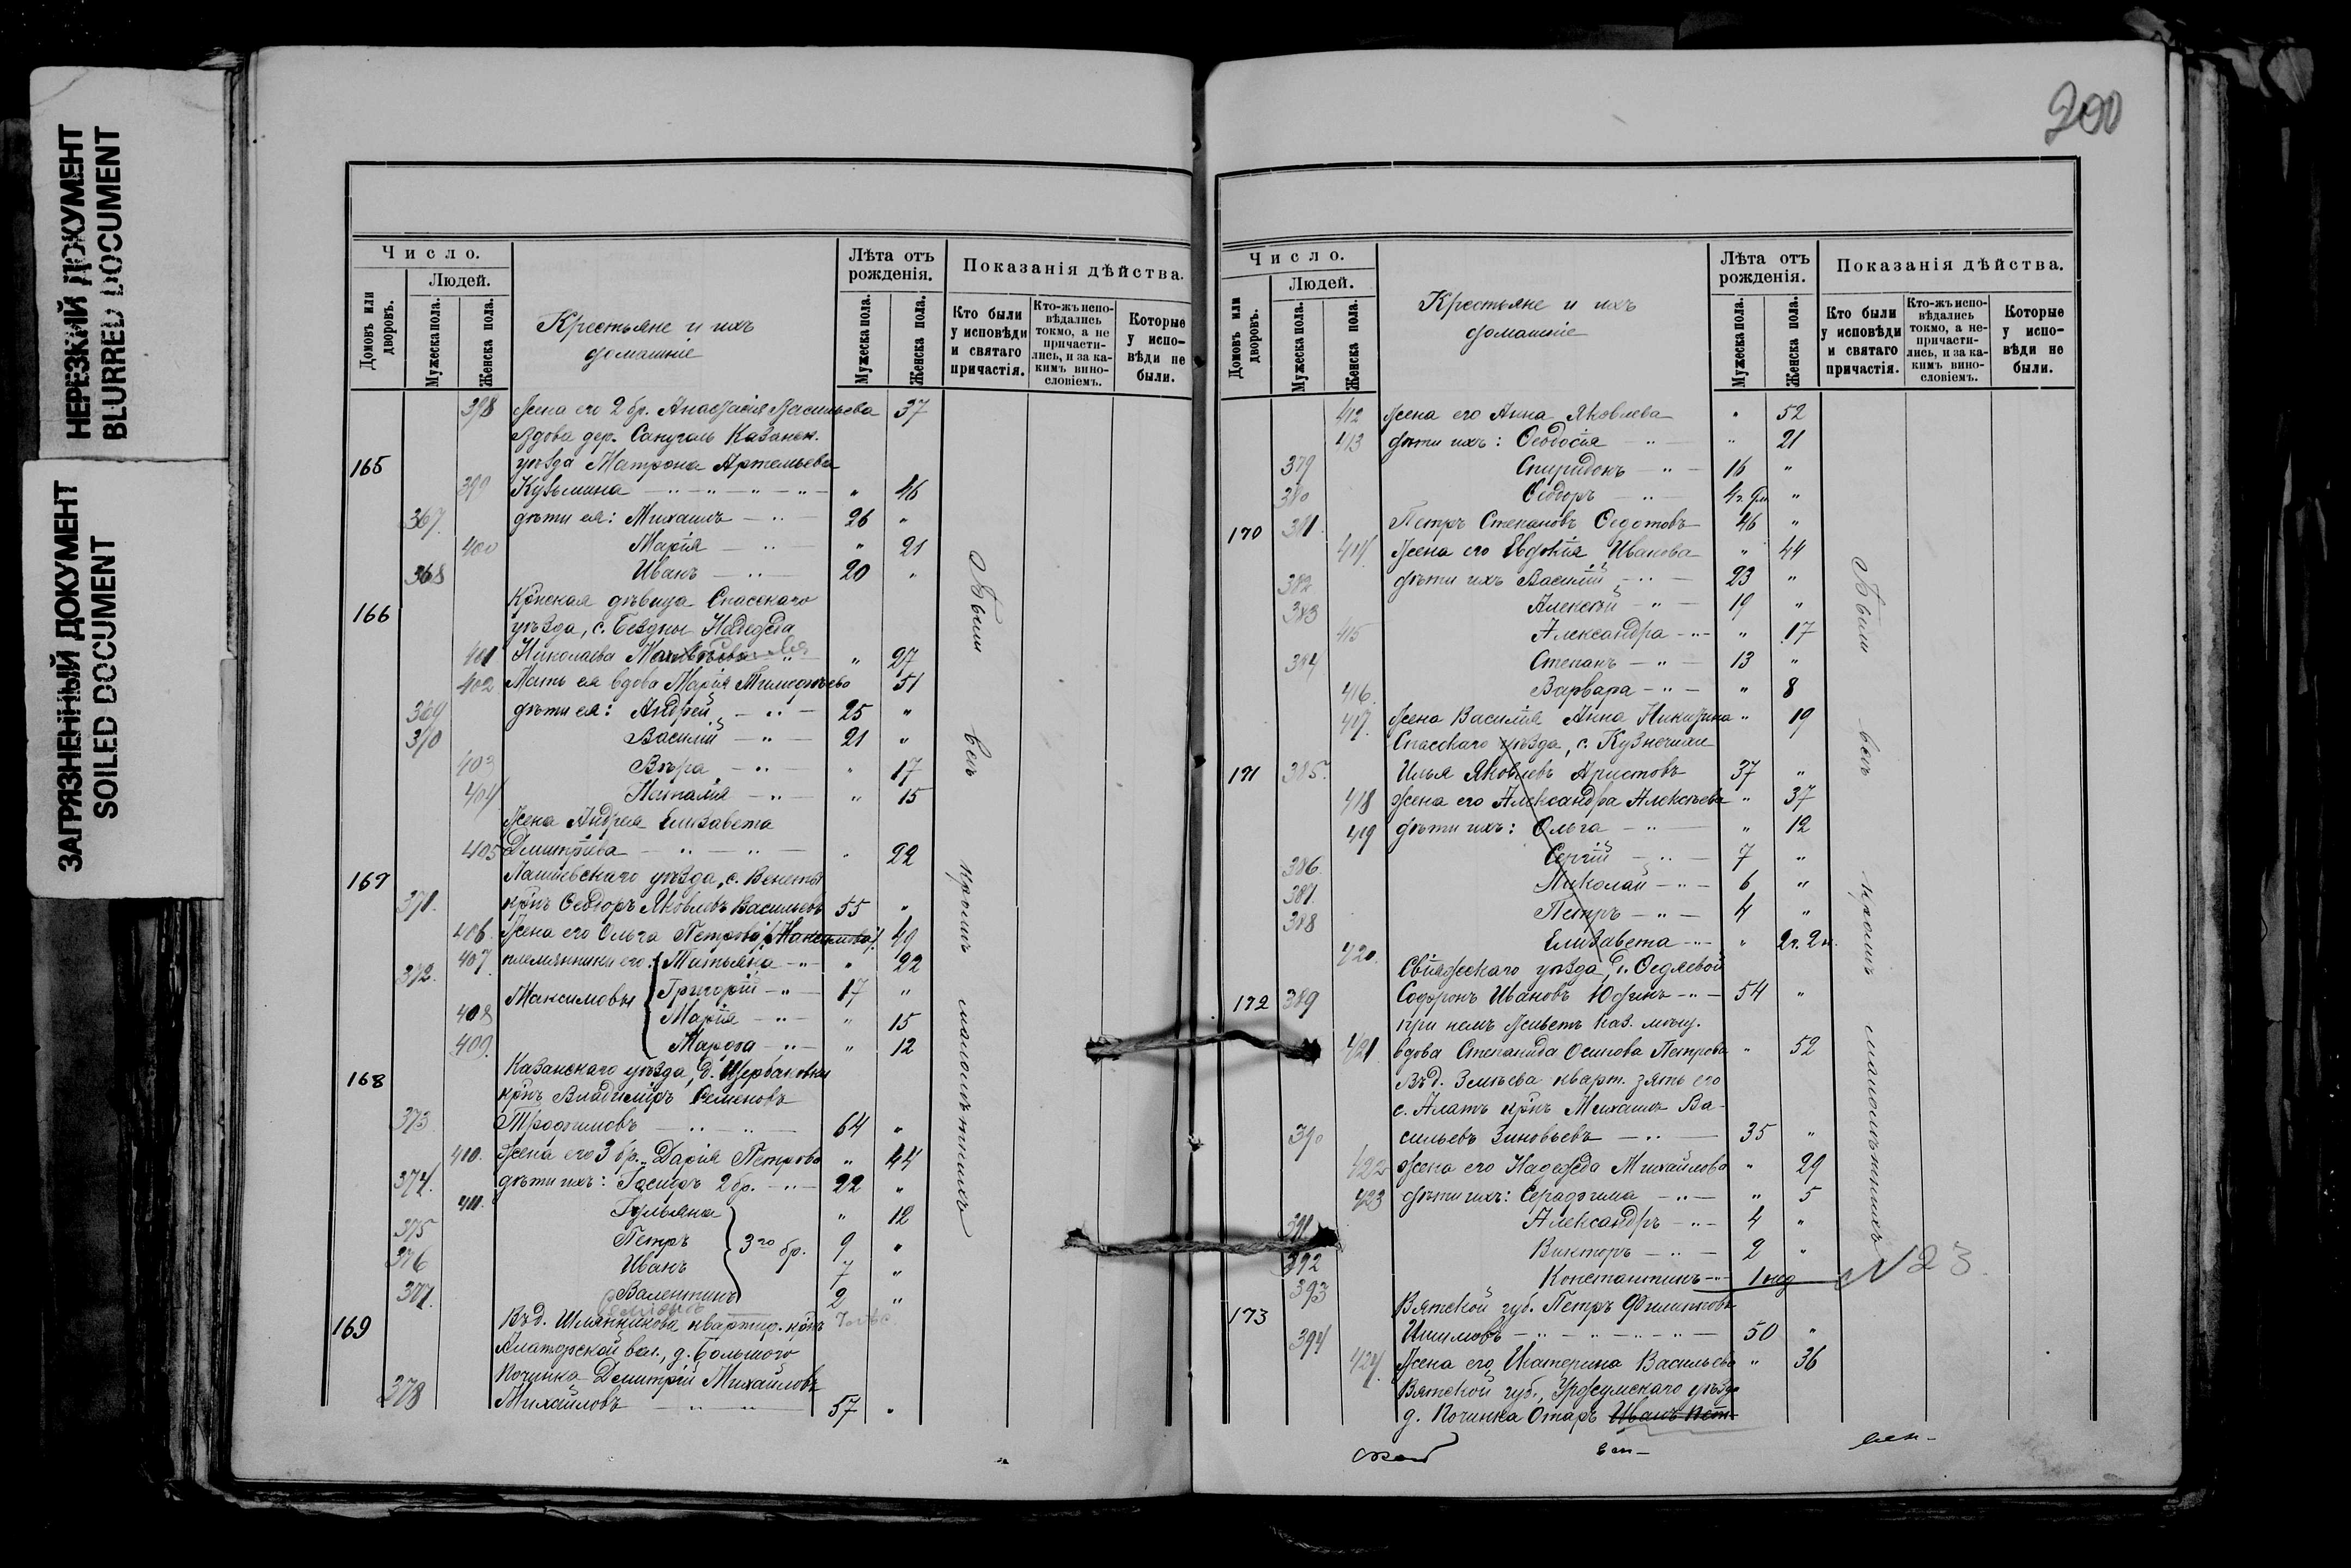 НЕРЕЗКИЙ ДОКУМЕНТ
BLURRED DOCUMENT
ЗАГРЯЗНЕННЫЙ ДОКУМЕНТ
SOILED DOCUMENT
Число.
Людей.
Домовъ или дворовъ.
Мужеска пола.
Женска пола.
Крестьяне и ихъ
домашніе
Лѣта отъ рожденія.
Мужеска пола.
Женска пола.
Показанія дѣйства.
Кто были у исповѣди и святаго причастія.
Кто-жъ исповѣдались токмо, а не причастились, и за какимъ винословіемъ.
Которые у исповѣди не были.
398 Жена его 2 бр. Анастасія Васильева 37
Вдова дер. Казанск.
165 уѣзда Матрона Артемьева
399 Кузьмина — " — " — " — " — " 46
367. дѣти ея: Михаилъ — " — 26 "
400 Марія — " — " 21
368 Иванъ — " — 20 "
166 Кр̃нская дѣвица Спасскаго
уѣзда, с. Бездны Надежда
401 Николаева " 27
402 Мать ея вдова Марія Тимофеева 51
369 дѣти ея: Андрей — " — 25 "
370 Василій — " — 21 "
403 Вѣра — " — " 17
404 Наталія — " — " 15
Жена Андрея Елизавета
405 Дмитріева — " — " — " 22
169 Лаишевскаго уѣзда, с. Венеты
371. кр̃нъ Ѳеодоръ Яковлевъ Васильевъ 55 "
406. Жена его Ольга Петрова (Максимова) 49
407 племянники его: Татьяна — " — " 22
372. Максимовы Григорій — " — 17 "
408 Марія — " — " 15
409. Марѳа — " — " 12
168 Казанскаго уѣзда, д. Щербаковки
кр̃нъ Владиміръ Семеновъ
373 Трофимовъ — " — " — 64 "
410. Жена его 3 бр. Дарія Петрова " 44
374. дѣти ихъ: Іосифъ 2 бр. — " — 22 "
411. Іуліана " 12
375 Петръ 3го бр. 9 "
376 Иванъ 7 "
377. Валентинъ 2 "
169 Въ д. Шлянникова квартир. кр̃нъ
вол., д. Большого
Починка Димитрій Михайловъ
378 Михайловъ — " — " — 57 "
Были всѣ кромѣ малолѣтнихъ
200
Число.
Людей.
Домовъ или дворовъ.
Мужеска пола.
Женска пола.
Крестьяне и ихъ
домашніе
Лѣта отъ рожденія.
Мужеска пола.
Женска пола.
Показанія дѣйства.
Кто были у исповѣди и святаго причастія.
Кто-жъ исповѣдались токмо, а непричастились, и за какимъ винословіемъ.
Которые у исповѣди не были.
412 Жена его Анна Яковлева " 52
413 дѣти ихъ: Ѳеодосія — " — " 21
379 Спиридонъ — " — 16 "
380 Ѳеодоръ — " — 4 г. 9 м "
170 381 Петръ Степановъ Ѳедотовъ 46 "
414 Жена его Евдокія Иванова " 44
382 дѣти ихъ Василій — " — 23 "
383 Алексѣй — " — 19 "
415 Александра — " — " 17
384 Степанъ — " — 13 "
416. Варвара — " — " 8
417. Жена Василія Анна Никитина " 19
Спасскаго уѣзда, с. Кузнечихи
171 385. Илья Яковлевъ Аристовъ 37 "
418 жена его Александра Алексѣева " 37
419 дѣти ихъ: Ольга — " — " 12
386. Сергій — " — 7 "
387. Николай — " — 6 "
388 Петръ — " — 4 "
420. Елизавета — " — " 2 г. 2 м.
Свіяжскаго уѣзда, д. Ѳедяевой
172 389 Софронъ Ивановъ Юдинъ — " — 54 "
при немъ живетъ каз. мѣщ.
421. вдова Степанида Осипова Петрова " 52
Въ д. Змѣева кварт. зять его
с. Алатъ кр̃нъ Михаилъ Ва-
390 сильевъ Зиновьевъ — " — 35 "
422 жена его Надежда Михайлова " 29
423 дѣти ихъ: Серафима — " — " 5
391 Александръ — " — 4 "
392 Викторъ — " — 2 "
393 Константинъ — " — 1 нед N 23
173 Вятской губ. Петръ Филипповъ
394 Ишимовъ — " — " — " — " — 50 "
424. Жена его Екатерина Васильева " 36
Вятской губ., Уржумскаго уѣзда
д. Починка Отаръ Иванъ Пет-
Были всѣ кромѣ малолѣтнихъ